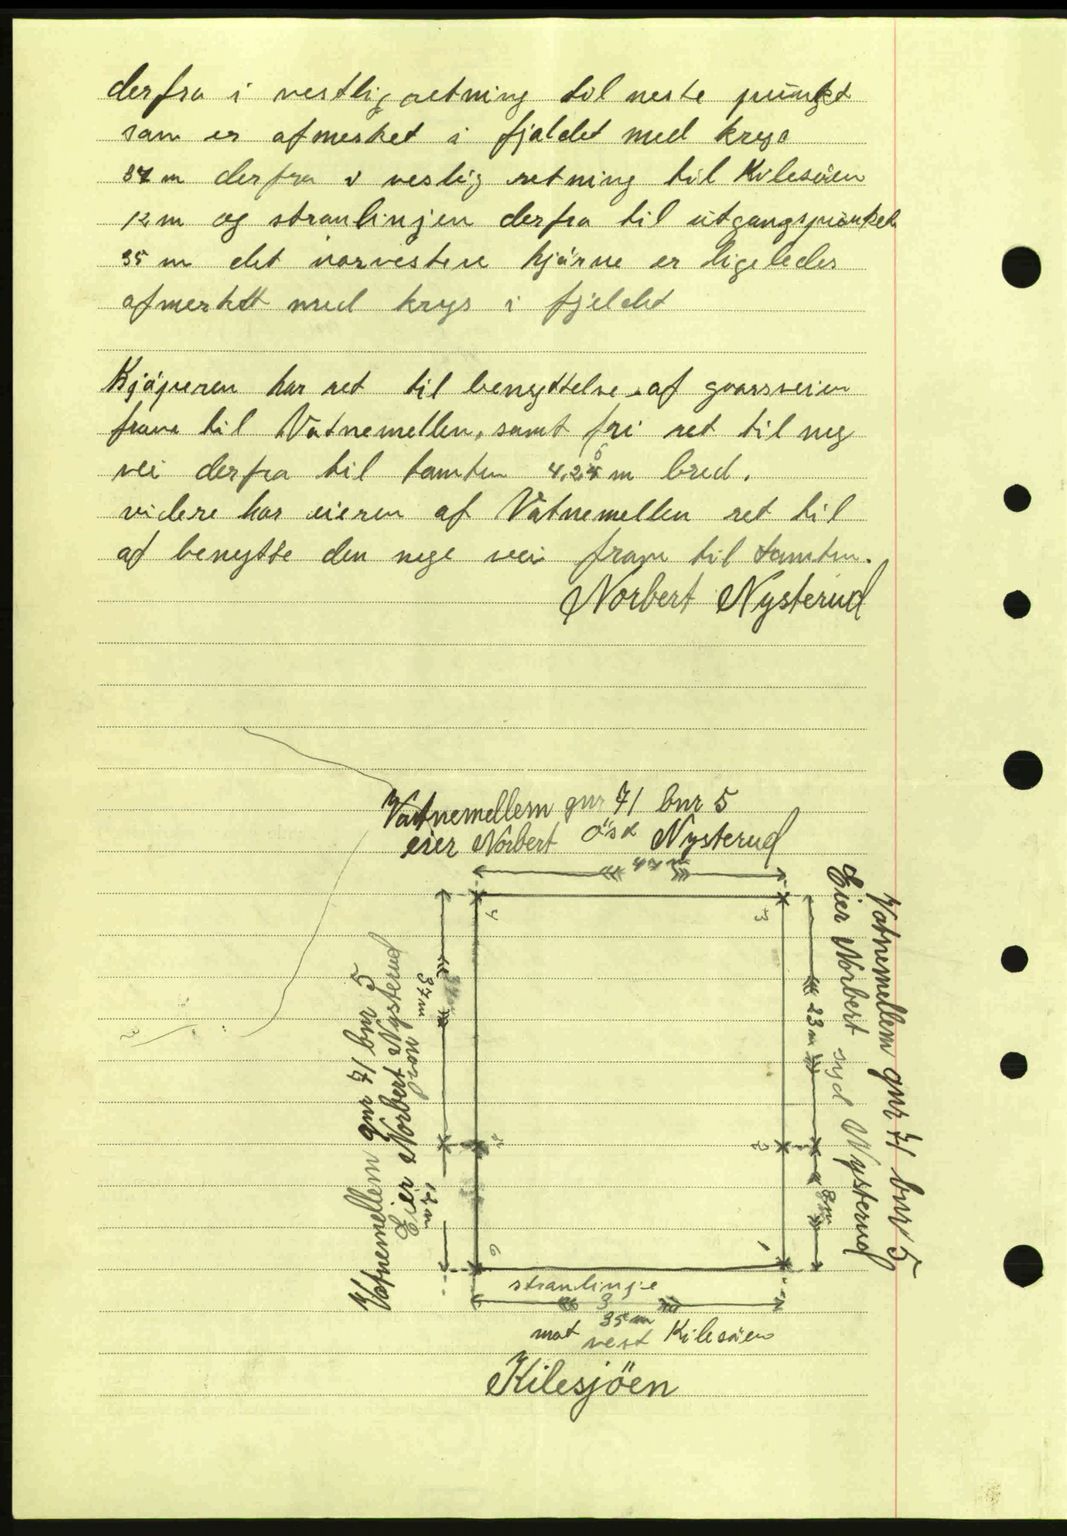 derfra i vestlig retning til neste punkt
som er afmerket i fjeldet med krys
37 m derfra i vestlig retning til Kilesöen
12 m og stranlinjen derfra til utgangspunket
35 m det norvestere hjörne er ligeledes
afmerkett med krys i fjeldet
Kjöperen har ret til benyttelse af gaarsveien
fram til Vatnemellen, samt fri ret til ny
vei derfra til tomten m bred.
videre har eieren af Vatnemellen ret til
at benytte den nye vei fram til tomten.
Norbert Nysterud
Vatnemellem gnr 71 bnr 5
eier Norbert Nysterud
öst
m
4
3
Vatnemellem gnr 71 bnr 5
Eier Norbert Nysterud
syd
23 m
2
8 m
1
Vatnemellem gnr 71 bnr 5
Eier Norbert Nysterud
nord
37 m
5
12 m
6
stranlinje
35 m
mot vest Kilesöen
Kilesjöen